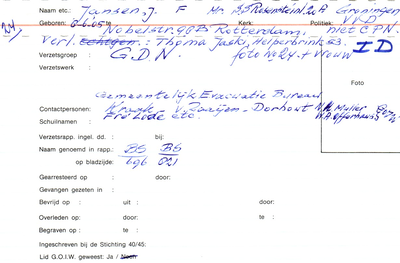 Naam etc.: Jansen, J. F Mr. Groningen
Geboren: te: Kerk: Politiek: VVD
Nobelstr. 90B Rotterdam, niet CPN.
Verl. : Thoma Jaski, Helperbrink 53.
Verzetsgroep : G.D.N. foto No 24 + vrouw ID
Verzetswerk :
Foto
Gemeentelijk Evacuatie Bureau
Contactpersonen: Kraak - v. Zaaijen - Dorhout N.H. Muller
Schuilnaam : Fré Lode etc. W.A. Offerhaus
Verzetsrapp. ingel. dd. : bij:
Naam genoemd in rapp.: BS BS
op bladzijde: 696 021
Gearresteerd op : door:
Gevangen gezeten in :
Bevrijd op : uit : door:
Overleden op : door: te :
Begraven op : te :
Ingeschreven bij de Stichting 40/45:
Lid G.O.I.W. geweest: Ja / Neen